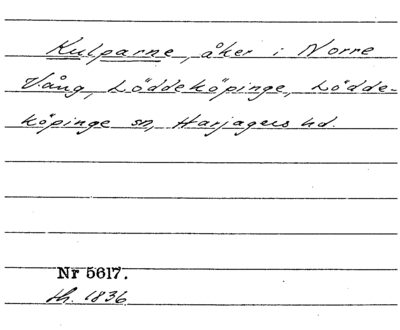 Kulparne, åker i Norre
Vång, Löddeköpinge, Lödde-
köpinge sn, Harjagers hd.
Nr 5617.
th. 1836